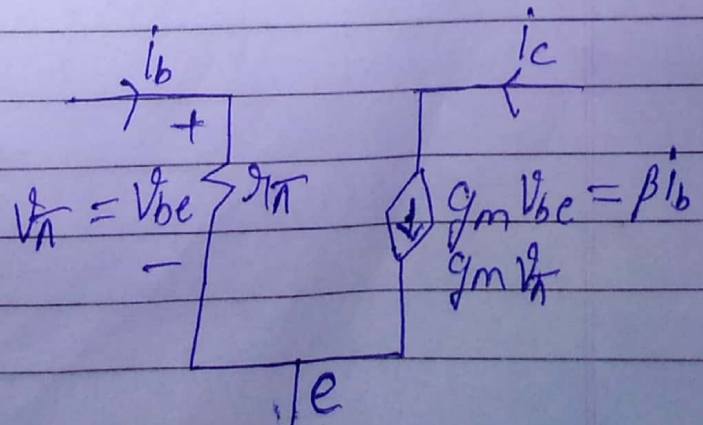 i_b
i_c
+
v_π = v_be
r_π
g_m v_be = βi_b
−
g_m v_π
e